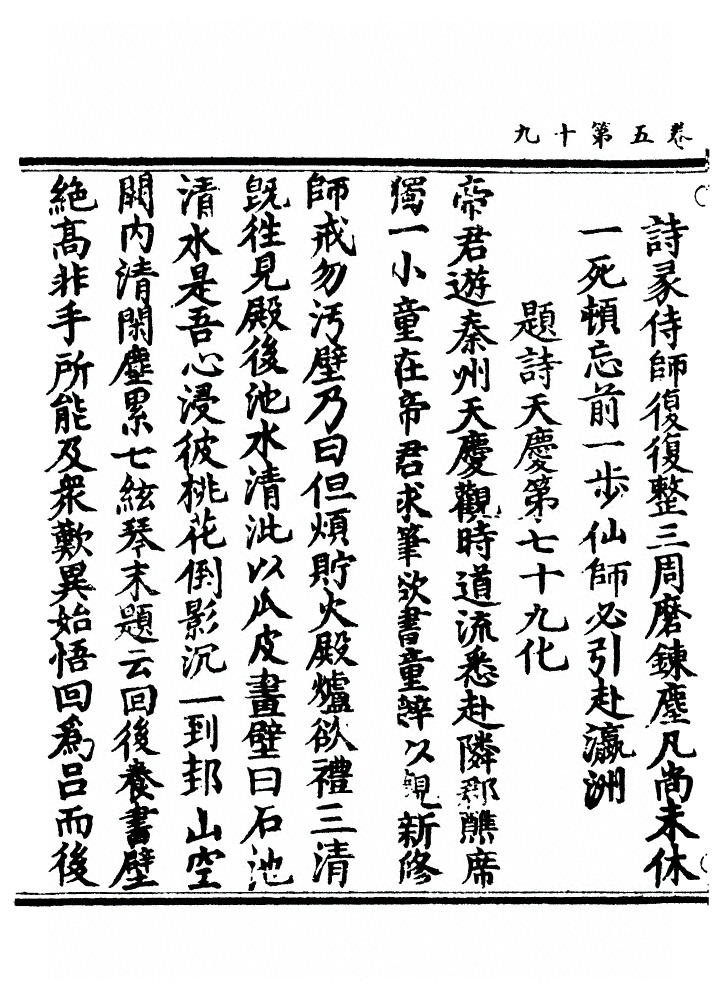 卷五第十九
詩彖侍師復復整三周磨鍊塵凡尚未休
一死頓忘前一步仙師必引赴瀛洲
題詩天慶第七十九化
帝君遊秦州天慶觀時道流悉赴隣郡醮席
獨一小童在帝君求筆欲書童辭以觀新修
師戒勿汚壁乃曰但煩貯火殿爐欲禮三清
旣徃見殿後池水清泚以瓜皮畫壁曰石池
清水是吾心浸彼桃花倒影沉一到邽山空
闕内清閑塵累七絃琴末題云回後養書壁
絶髙非手所能及衆歎異始悟回爲吕而後